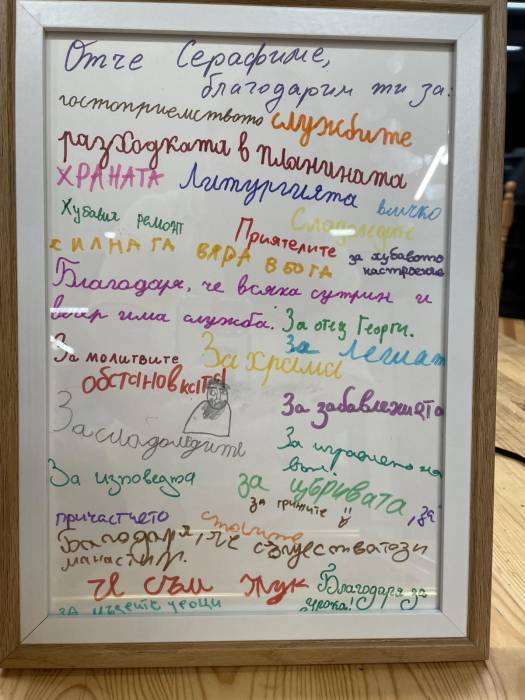 Отче Серафиме,
благодарим ти за:
гостоприемството службите
разходката в планината
ХРАНАТА Литургията всичко
Хубавия ремонт Приятелите Сладоледите
СИЛНАТА ВЯРА В БОГА за хубавото
настроение
Благодаря, че всяка сутрин и
вечер има служба. За отец Георги.
За молитвите За храма За легиат
обстановката
За забавлежита
За сладоледите За играенето на
вън!
За изповедта за цбривата
за грижите , за
причастието стаите
Благодаря, че съществатози
манастир.
Че съм тук Благодаря за
урока!
ЗА ЦЪРЕТЕ УРОЦИ